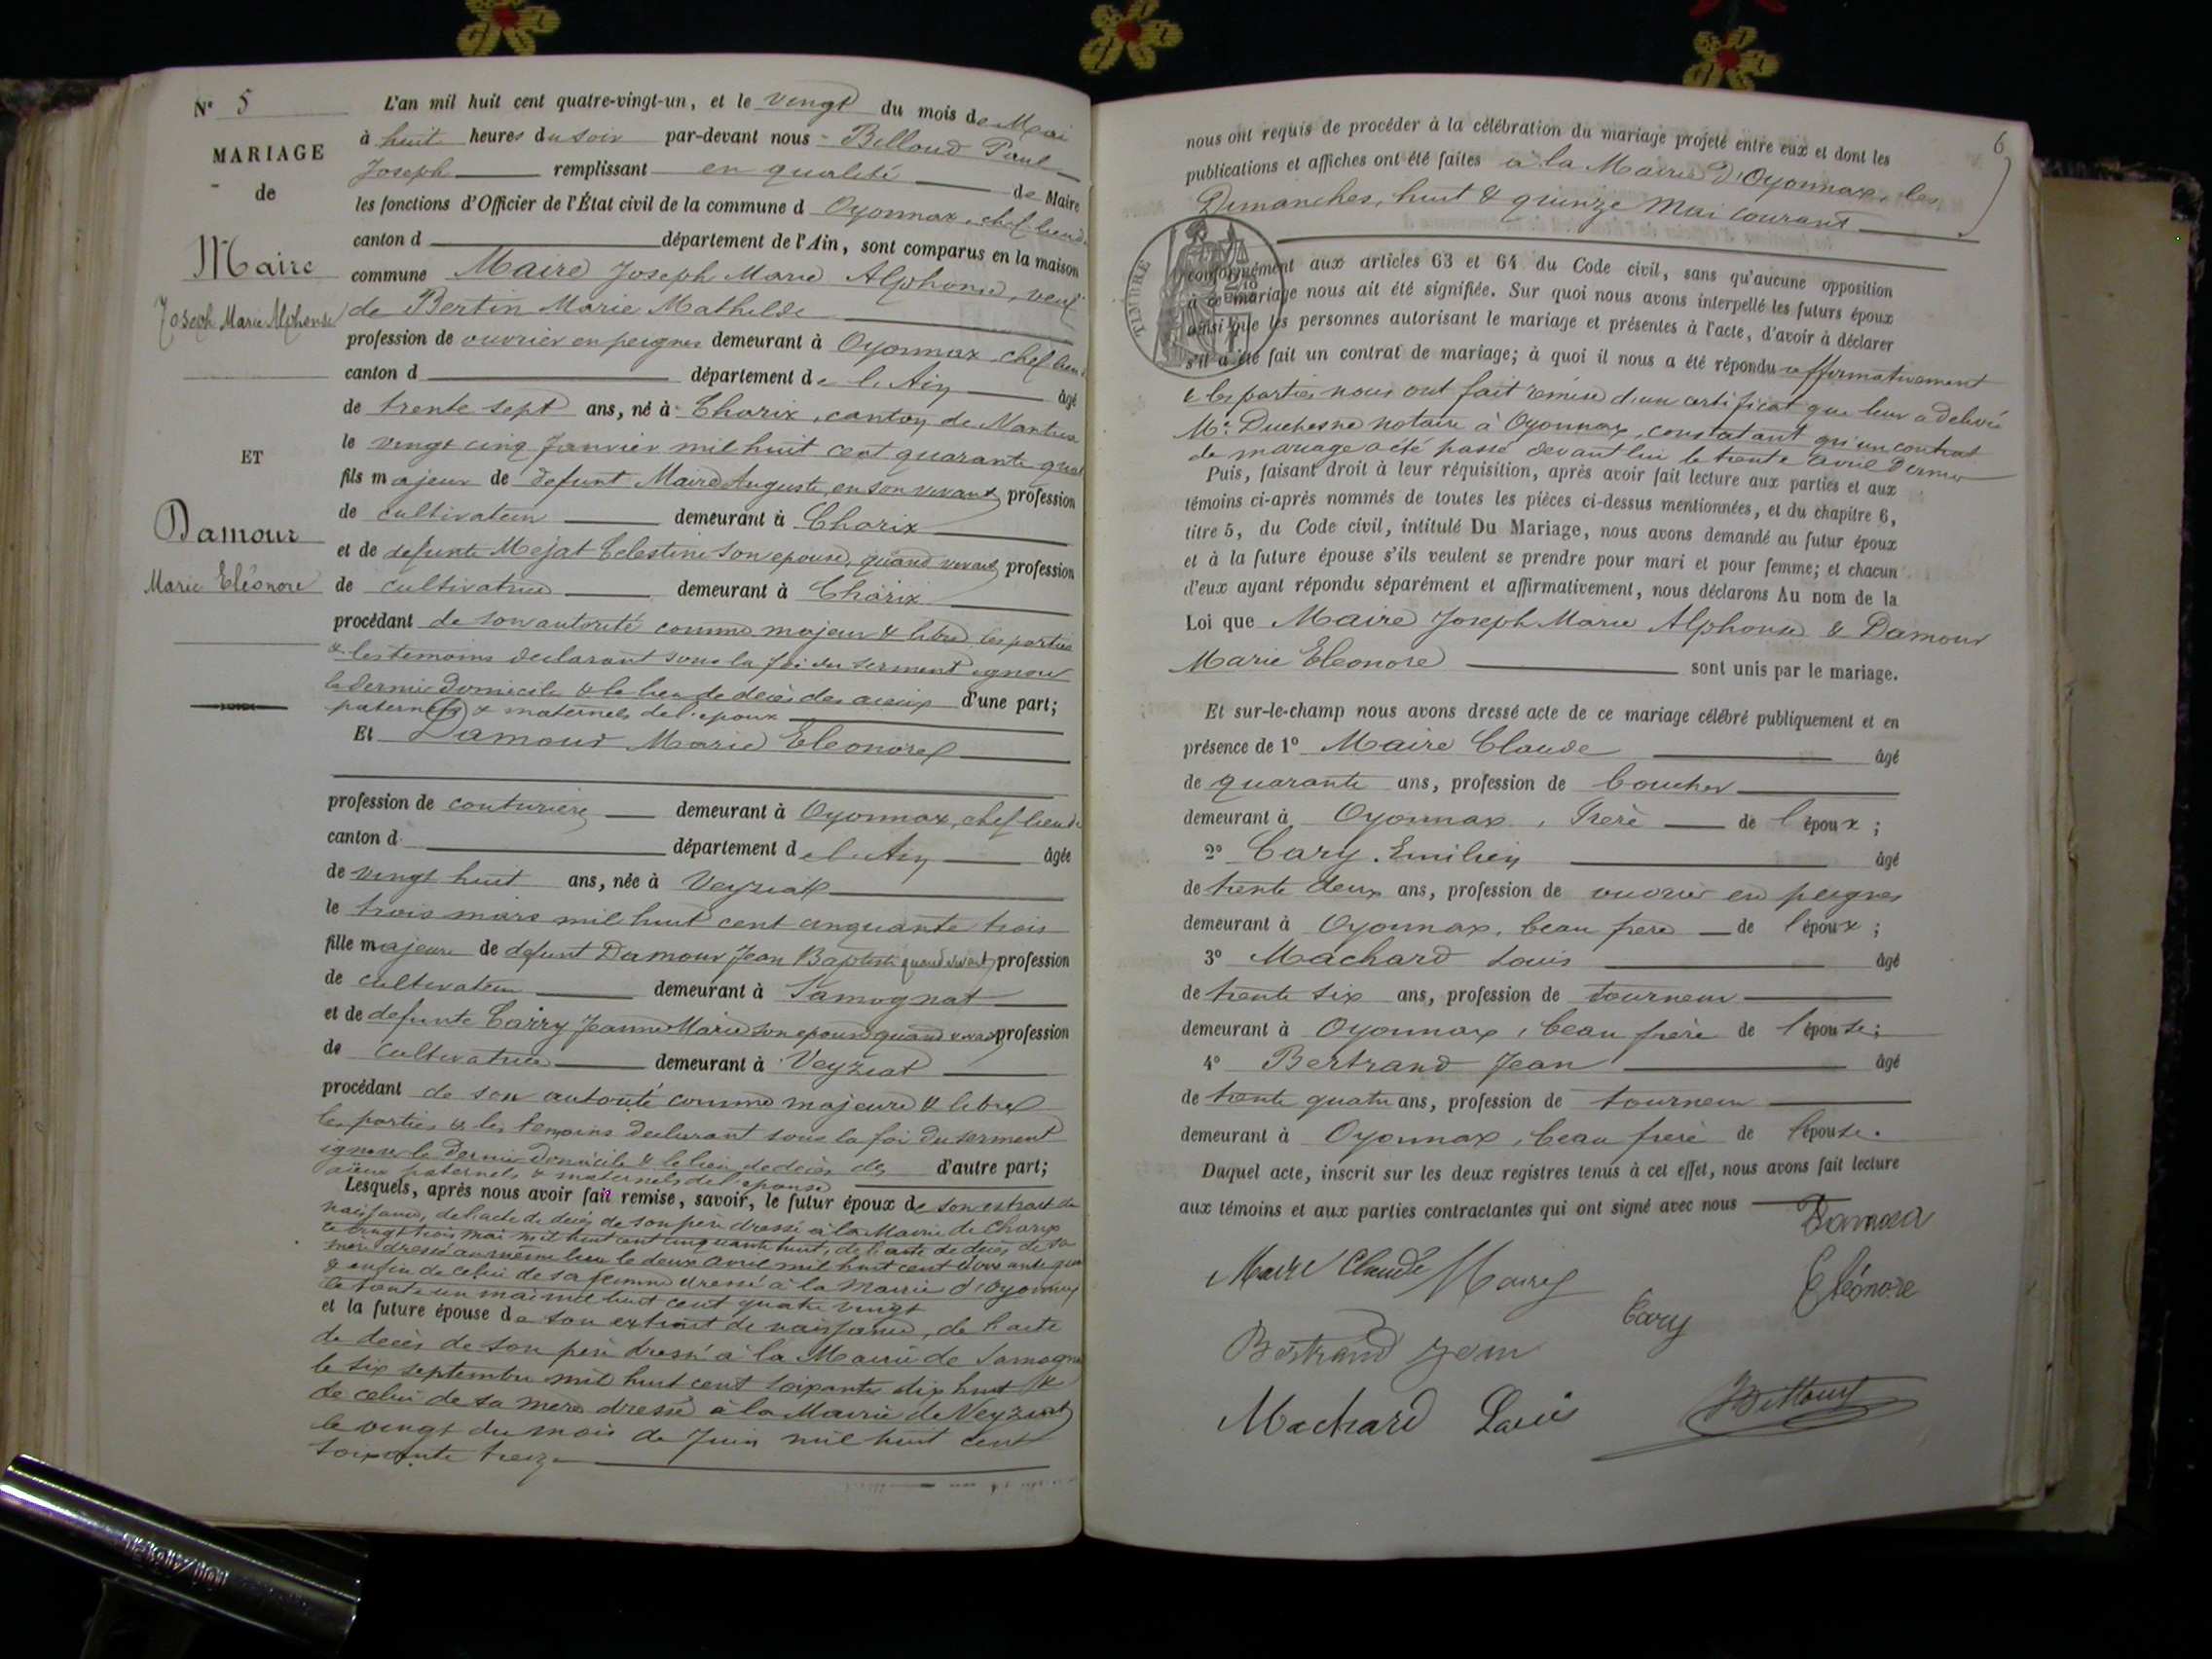 N° 5
MARIAGE
de
Maire
Joseph Marie Alphonse
ET
Damour
Marie Eléonore
L'an mil huit cent quatre-vingt-un, et le vingt du mois de Mai
à huit heures du soir par-devant nous Billoud Paul
Joseph remplissant en qualité de Maire
les fonctions d'Officier de l'État civil de la commune d Oyonnax, chef lieu de
canton d département de l'Ain, sont comparus en la maison
commune Maire Joseph Marie Alphonse, veuf
de Bertin Marie Mathilde
profession de ouvrier en peignes demeurant à Oyonnax chef lieu d
canton d département de l'Ain âgé
de trente sept ans, né à Charix, canton de Nantua
le vingt cinq Janvier mil huit cent quarante quat
fils majeur de defunt Maire Auguste, en son vivant profession
de cultivateur demeurant à Charix
et de defunte Mejat Celestine son epouse, quand vivait profession
de cultivatrice demeurant à Charix
procédant de son autorité comme majeur & libre les parties
& les temoins declarant sous la foi du serment ignorer
le dernier domicile & le lieu de decès des aieux d'une part;
paternels & maternels de l'epoux
Et Damour Marie Eleonore
profession de couturière demeurant à Oyonnax, chef-lieu de
canton d département d e l'Ain âgée
de vingt huit ans, née à Veyziat
le trois mars mil huit cent cinquante trois
fille majeure de defunt Damour Jean Baptiste quand vivait profession
de cultivateur demeurant à Samognat
et de defunte Carry Jeanne Marie son epouse quand vivait profession
de cultivatrice demeurant à Veyziat
procédant de son autorité comme majeure & libre
les parties & les temoins declarant sous la foi du serment
ignorer le dernier domicile & le lieu de decès des d'autre part;
aieux paternels & maternels de l'epouse
Lesquels, après nous avoir fait remise, savoir, le futur époux de son extrait de
naissance, de l'acte de decès de son père dressé à la Mairie de Charix
le vingt trois mai mil huit cent cinquante huit, de l'acte de decès de sa
mère dressé au même lieu le deux avril mil huit cent
& enfin de celui de sa femme dressé à la Mairie d'Oyonnax
le trente un mai mil huit cent quatre vingt
et la future épouse de son extrait de naissance, de l'acte
de decès de son père dressé à la Mairie de Samogna
le six septembre mil huit cent soixante dix huit &
de celui de sa mère dressé à la Mairie de Veyziat
le vingt du mois de Juin mil huit cent
soixante treize
6
nous ont requis de procéder à la célébration du mariage projeté entre eux et dont les
publications et affiches ont été faites à la Mairie d'Oyonnax, les
Dimanches, huit & quinze Mai courant
TIMBRE
conformément aux articles 63 et 64 du Code civil, sans qu'aucune opposition
à ce mariage nous ait été signifiée. Sur quoi nous avons interpellé les futurs époux
ainsi que les personnes autorisant le mariage et présentes à l'acte, d'avoir à déclarer
s'il a été fait un contrat de mariage; à quoi il nous a été répondu affirmativement
& les parties nous ont fait remise d'un certificat que leur a delivré
Mr. Duchesne notaire à Oyonnax, constatant qu'un contrat
de mariage a été passé devant lui le trente avril dernier
Puis, faisant droit à leur réquisition, après avoir fait lecture aux parties et aux
témoins ci-après nommés de toutes les pièces ci-dessus mentionnées, et du chapitre 6,
titre 5, du Code civil, intitulé Du Mariage, nous avons demandé au futur époux
et à la future épouse s'ils veulent se prendre pour mari et pour femme; et chacun
d'eux ayant répondu séparément et affirmativement, nous déclarons Au nom de la
Loi que Maire Joseph Marie Alphonse & Damour
Marie Eleonore sont unis par le mariage.
Et sur-le-champ nous avons dressé acte de ce mariage célébré publiquement et en
présence de 1° Maire Claude âgé
de quarante ans, profession de boucher
demeurant à Oyonnax, frère de l'époux;
2° Cary Emilien âgé
de trente deux ans, profession de ouvrier en peignes
demeurant à Oyonnax, beau frere de l'époux;
3° Machard Louis âgé
de trente six ans, profession de tourneur
demeurant à Oyonnax, beau frère de l'épouse;
4° Bertrand Jean âgé
de trente quatre ans, profession de tourneur
demeurant à Oyonnax, beau frere de l'épouse.
Duquel acte, inscrit sur les deux registres tenus à cet effet, nous avons fait lecture
aux témoins et aux parties contractantes qui ont signé avec nous
Eléonore
Maire Claude
Cary
Bertrand Jean
Machard Louis